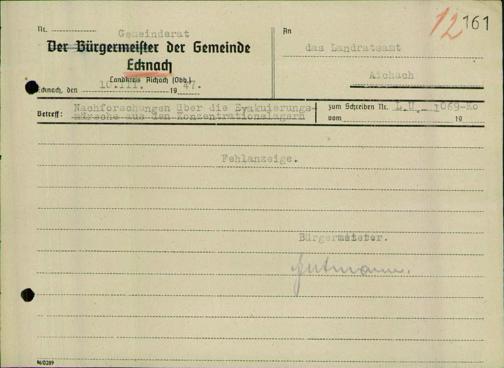 12 161
Nr.
Gemeinderat
An
Der Bürgermeister der Gemeinde
das Landratsamt
Ecknach
Landkreis Aichach (Obb.)
Aichach
Ecknach, den 10.III. 1947.
Betreff: Nachforschungen über die Evakuierungs-
märsche aus den Konzentrationslagern
zum Schreiben Nr. L.U. 1069-Ko
vom 19
Fehlanzeige.
Bürgermeister.
Gutmann.